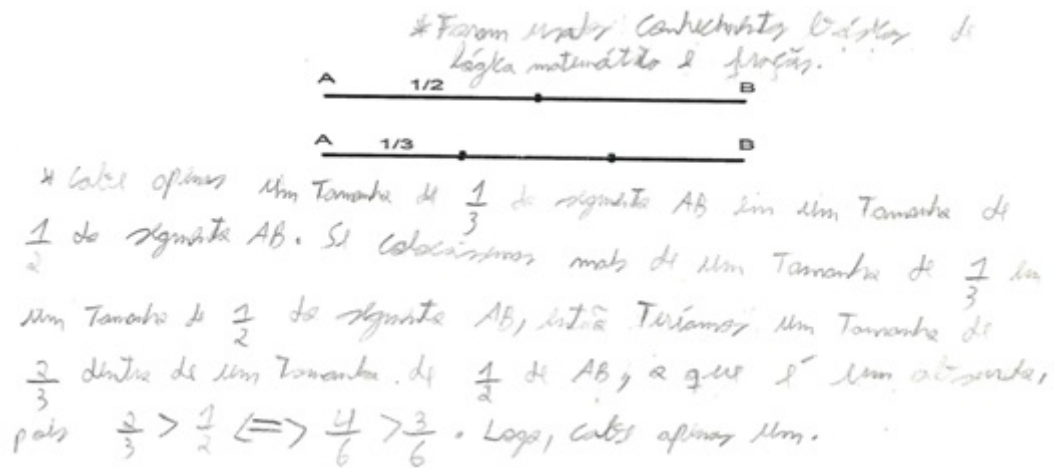 * Foram usados conhecimentos básicos de
lógica matemática e frações.
A 1/2 B
A 1/3 B
* Cabe apenas um Tamanho de 1/3 do segmento AB em um Tamanho de
1/2 do segmento AB. Se colocássemos mais de um Tamanho de 1/3 em
um Tamanho de 1/2 do segmento AB, então Teríamos um Tamanho de
2/3 dentro de um Tamanho de 1/2 de AB, o que é um absurdo,
pois 2/3 > 1/2 <=> 4/6 > 3/6. Logo, cabe apenas um.